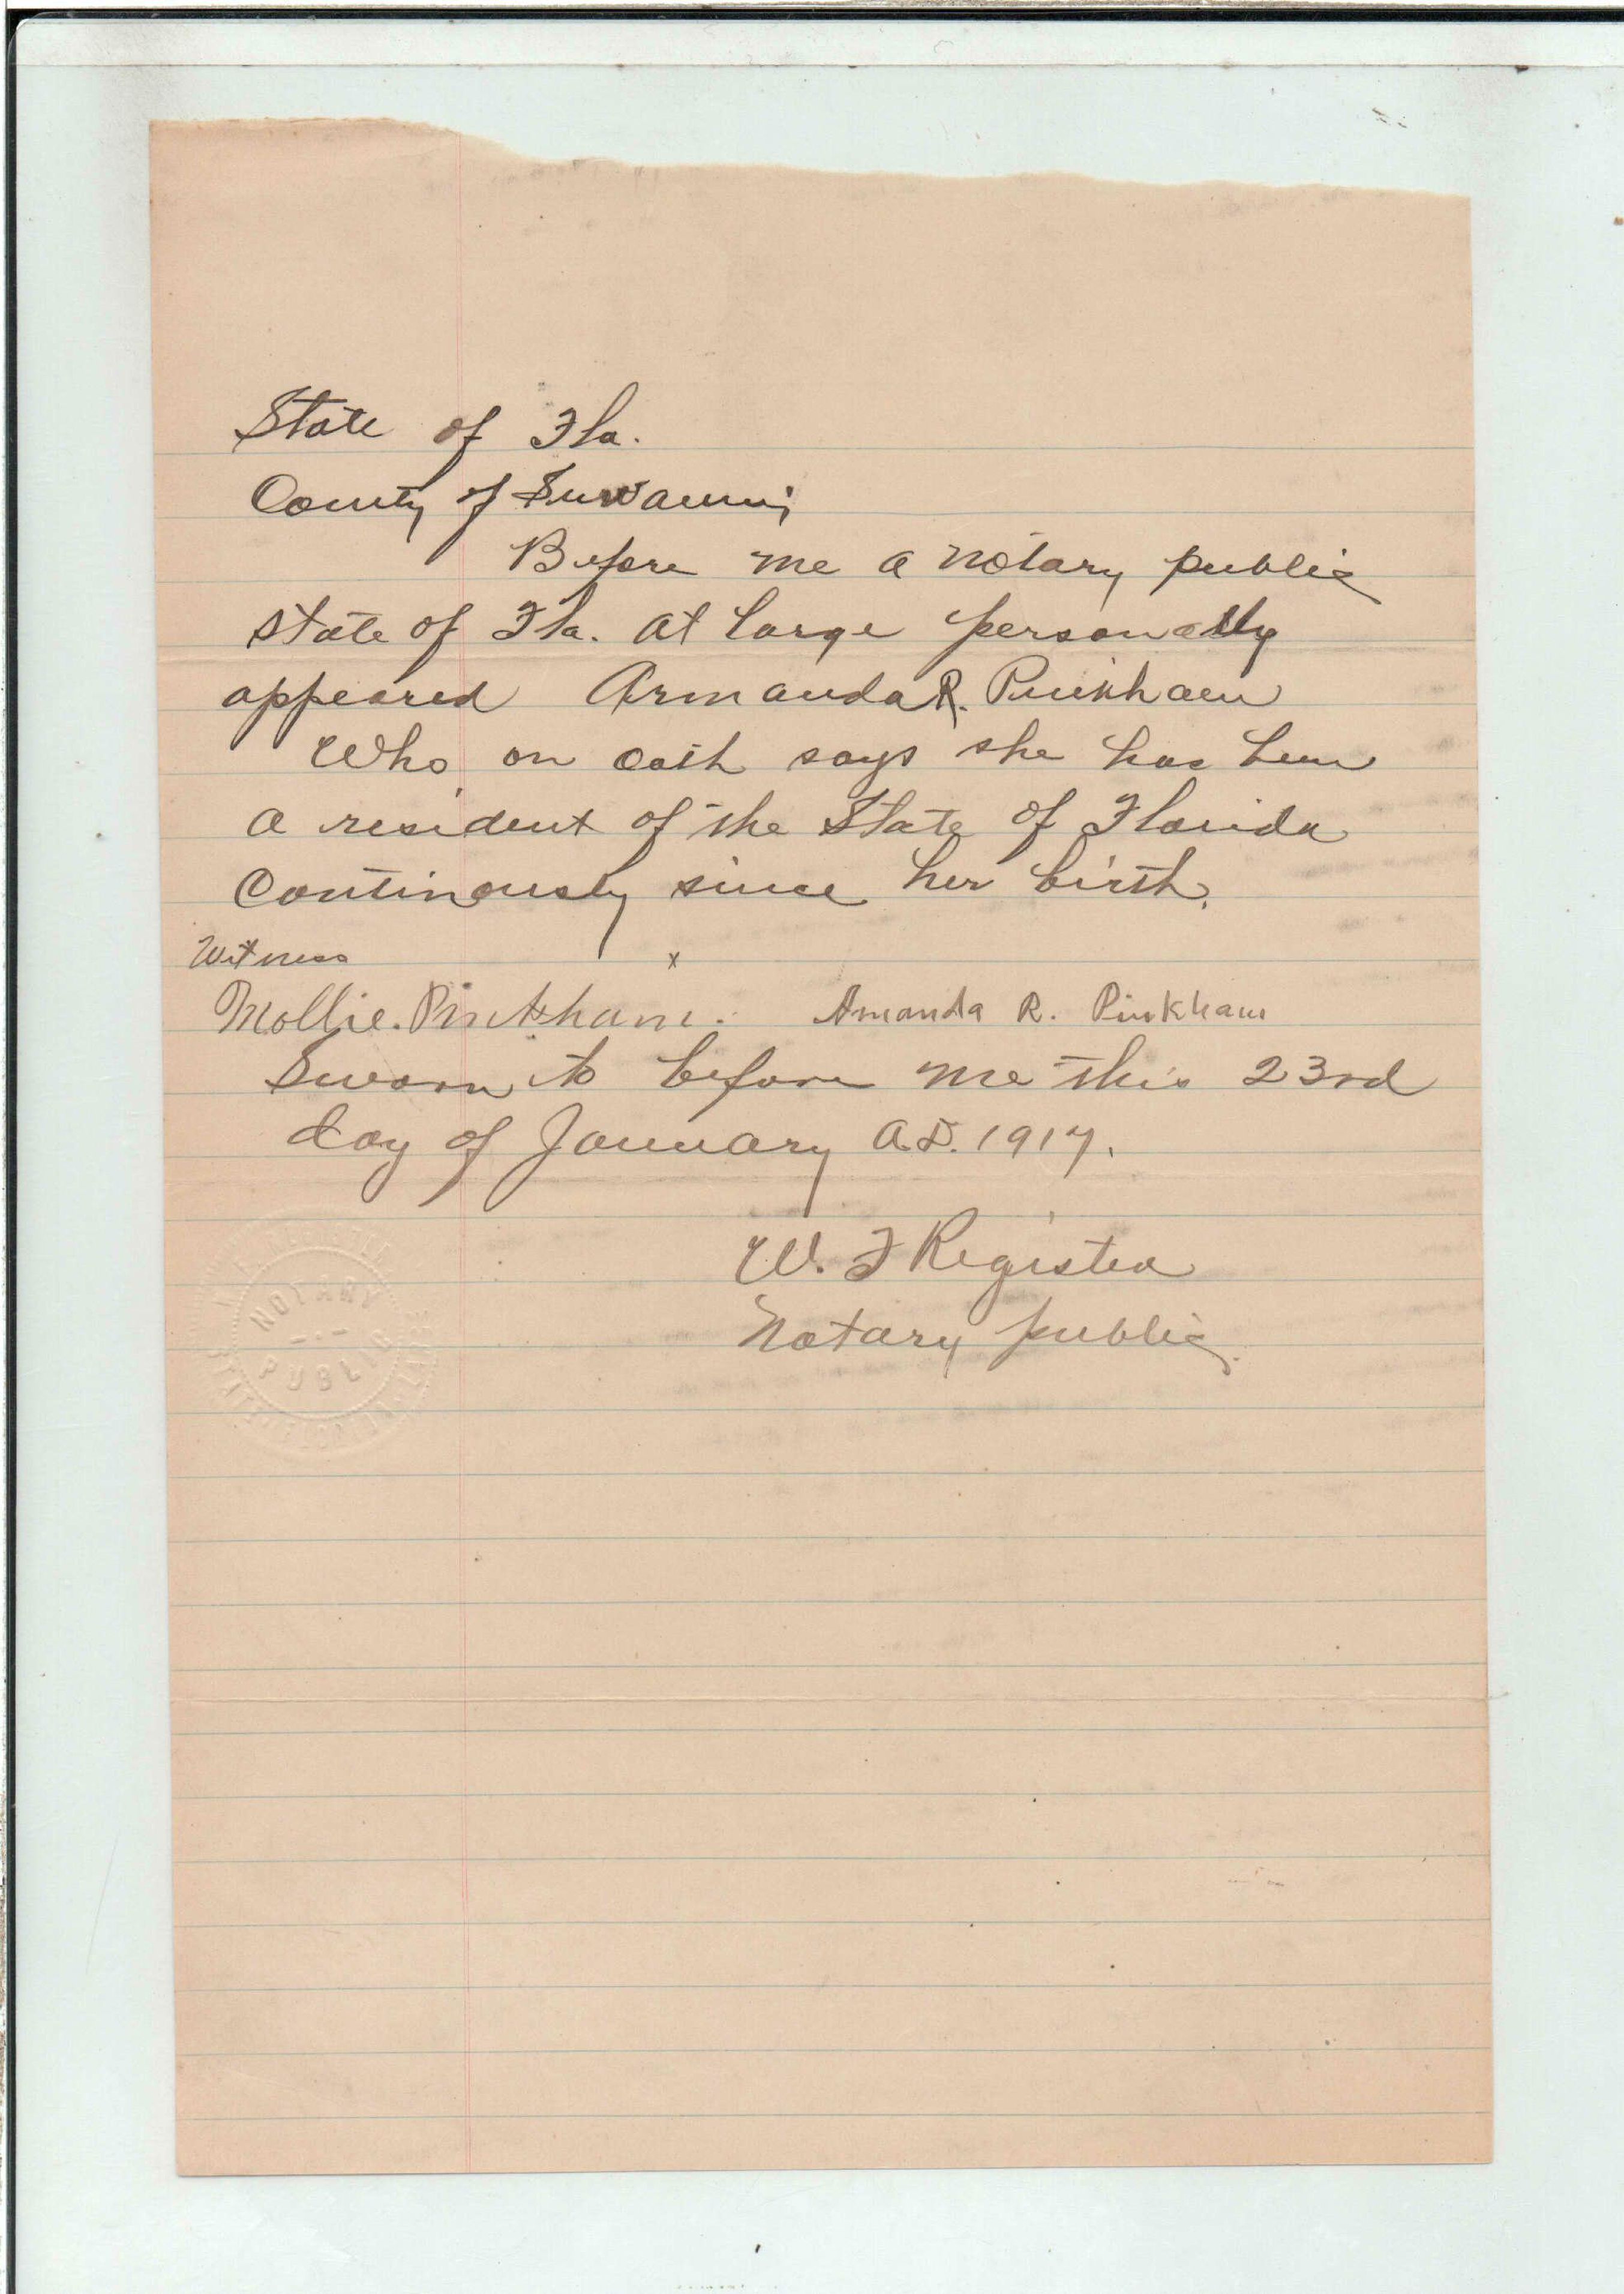 State of Fla.
County of Suwannee
Before me a notary public
state of Fla. at large personally
appeared Armanda R. Pinkham
Who on oath says she has been
a resident of the State of Florida
Continously since her birth.
Witness x
Mollie. Pinkham. Amanda R. Pinkham
Sworn to before me this 23rd
day of January A.D. 1917.
W. F Register
Notary public.
NOTARY
PUBLIC